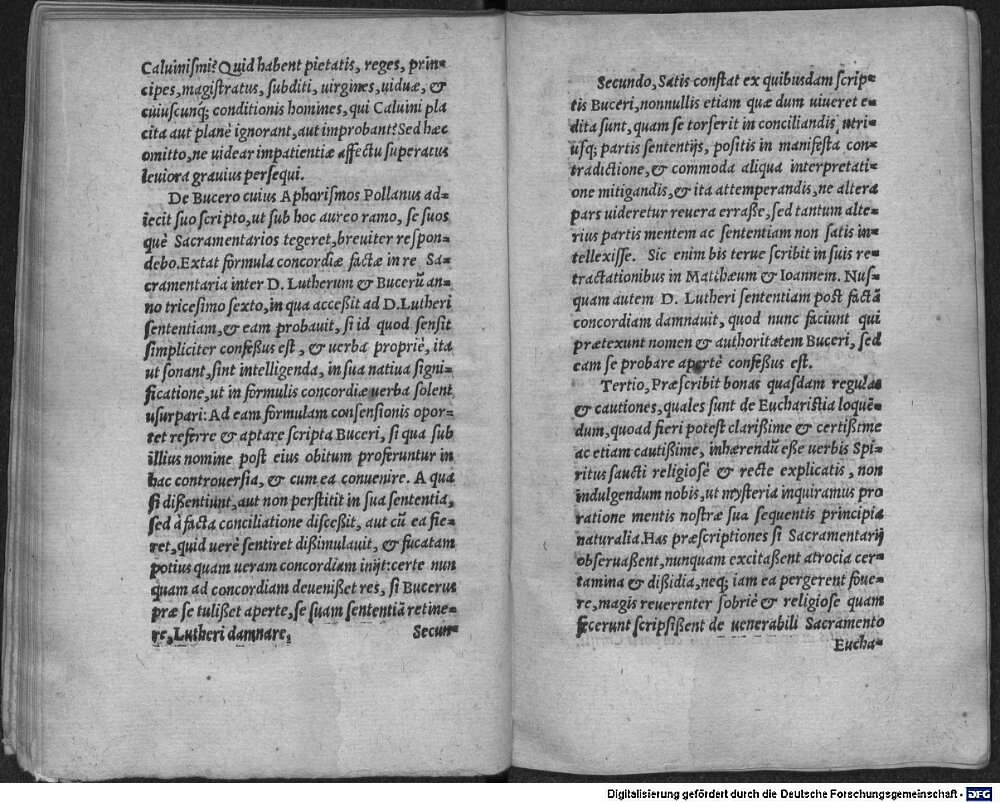 Caluiniſmi? Quid habent pietatis, reges, prin-
cipes, magiſtratus, ſubditi, uirgines, uiduæ, &
cuiuſcunq; conditionis homines, qui Caluini pla
cita aut planè ignorant, aut improbant? Sed hæc
omitto, ne uidear impatientiæ affectu ſuperatus
leuiora grauius perſequi.
De Bucero cuius Aphoriſmos Pollanus ad-
iecit ſuo ſcripto, ut ſub hoc aureo ramo, ſe ſuos
què Sacramentarios tegeret, breuiter reſpon-
debo. Extat formula concordiæ factæ in re Sa-
cramentaria inter D. Lutherum & Bucerũ an-
no triceſimo ſexto, in qua acceßit ad D. Lutheri
ſententiam, & eam probauit, ſi id quod ſenſit
ſimpliciter confeßus eſt, & uerba propriè, ita
ut ſonant, ſint intelligenda, in ſua natiua ſigni-
ficatione, ut in formulis concordiæ uerba ſolent
uſurpari: Ad eam formulam conſenſionis opor-
tet referre & aptare ſcripta Buceri, ſi qua ſub
illius nomine poſt eius obitum proferuntur in
hac controuerſia, & cum ea conuenire. A qua
ſi dißentiunt, aut non perſtitit in ſua ſententia,
ſed à facta conciliatione diſceßit, aut cũ ea fie-
ret, quid uerè ſentiret dißimulauit, & fucatam
potius quam ueram concordiam inijt: certe nun
quam ad concordiam deuenißet res, ſi Bucerus
præ ſe tulißet aperte, ſe ſuam ſententiã retine-
re, Lutheri damnare.
Secun-
Secundo, Satis conſtat ex quibuſdam ſcrip-
tis Buceri, nonnullis etiam quæ dum uiueret e-
dita ſunt, quam ſe torſerit in conciliandis utri-
uſq; partis ſententijs, poſitis in manifeſta con-
tradictione, & commoda aliqua interpretati-
one mitigandis, & ita attemperandis, ne altera
pars uideretur reuera erraße, ſed tantum alte-
rius partis mentem ac ſententiam non ſatis in-
tellexiſſe. Sic enim bis terue ſcribit in ſuis re-
tractationibus in Matthæum & Ioannem. Nuſ-
quam autem D. Lutheri ſententiam poſt factã
concordiam damnauit, quod nunc faciunt qui
prætexunt nomen & authoritatem Buceri, ſed
eam ſe probare apertè confeßus eſt.
Tertio, Præſcribit bonas quaſdam regulas
& cautiones, quales ſunt de Euchariſtia loquẽ-
dum, quoad fieri poteſt clarißime & certißime
ac etiam cautißime, inhærendũ eße uerbis Spi-
ritus ſancti religioſè & recte explicatis, non
indulgendum nobis, ut myſteria inquiramus pro
ratione mentis noſtræ ſua ſequentis principia
naturalia. Has præſcriptiones ſi Sacramentarij
obſeruaßent, nunquam excitaßent atrocia cer-
tamina & dißidia, neq; iam ea pergerent foue-
re, magis reuerenter ſobriè & religioſe quam
fecerunt ſcripſißent de uenerabili Sacramento
Eucha-
Digitalisierung gefördert durch die Deutsche Forschungsgemeinschaft - DFG